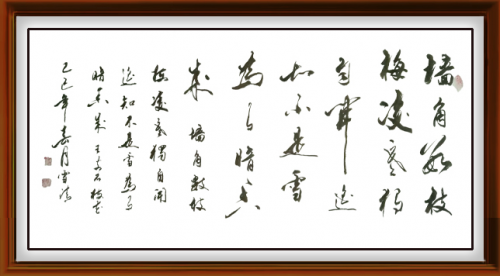 墙角数枝
梅凌寒独
自開遥
知不是雪
为有暗香
来 墙角数枝
梅凌寒獨自開
遥知不是雪为有
暗香来 王安石梅花
年 月雪